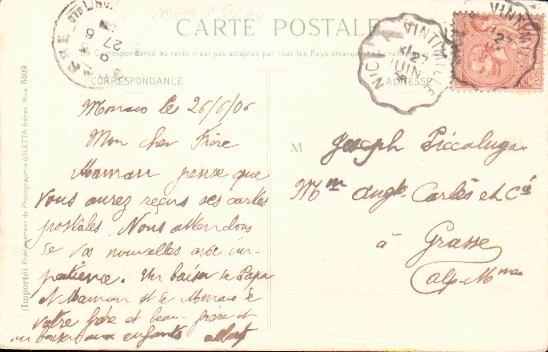 CARTE POSTALE
La Correspondance au recto n'est pas acceptée par tous les Pays étrangers
CORRESPONDANCE
ADRESSE
NICE A VINTIMILLE
27
JUIN
06
VINTI
27
27
6
(Importé) Etablissement de Photographie GILETTA frères, Nice
Monaco le 26/6/06
Mon cher Frère
Maman pense que
vous aurez reçus ses cartes
postales. Nous attendons
de vos nouvelles avec im-
patience. Un baiser de Papa
et Maman et de
votre frère et beau-frère et
un baiser aux enfants
M Joseph Piccaluga
Mon Cartès et Cie
à
Grasse
Alp-Mmes